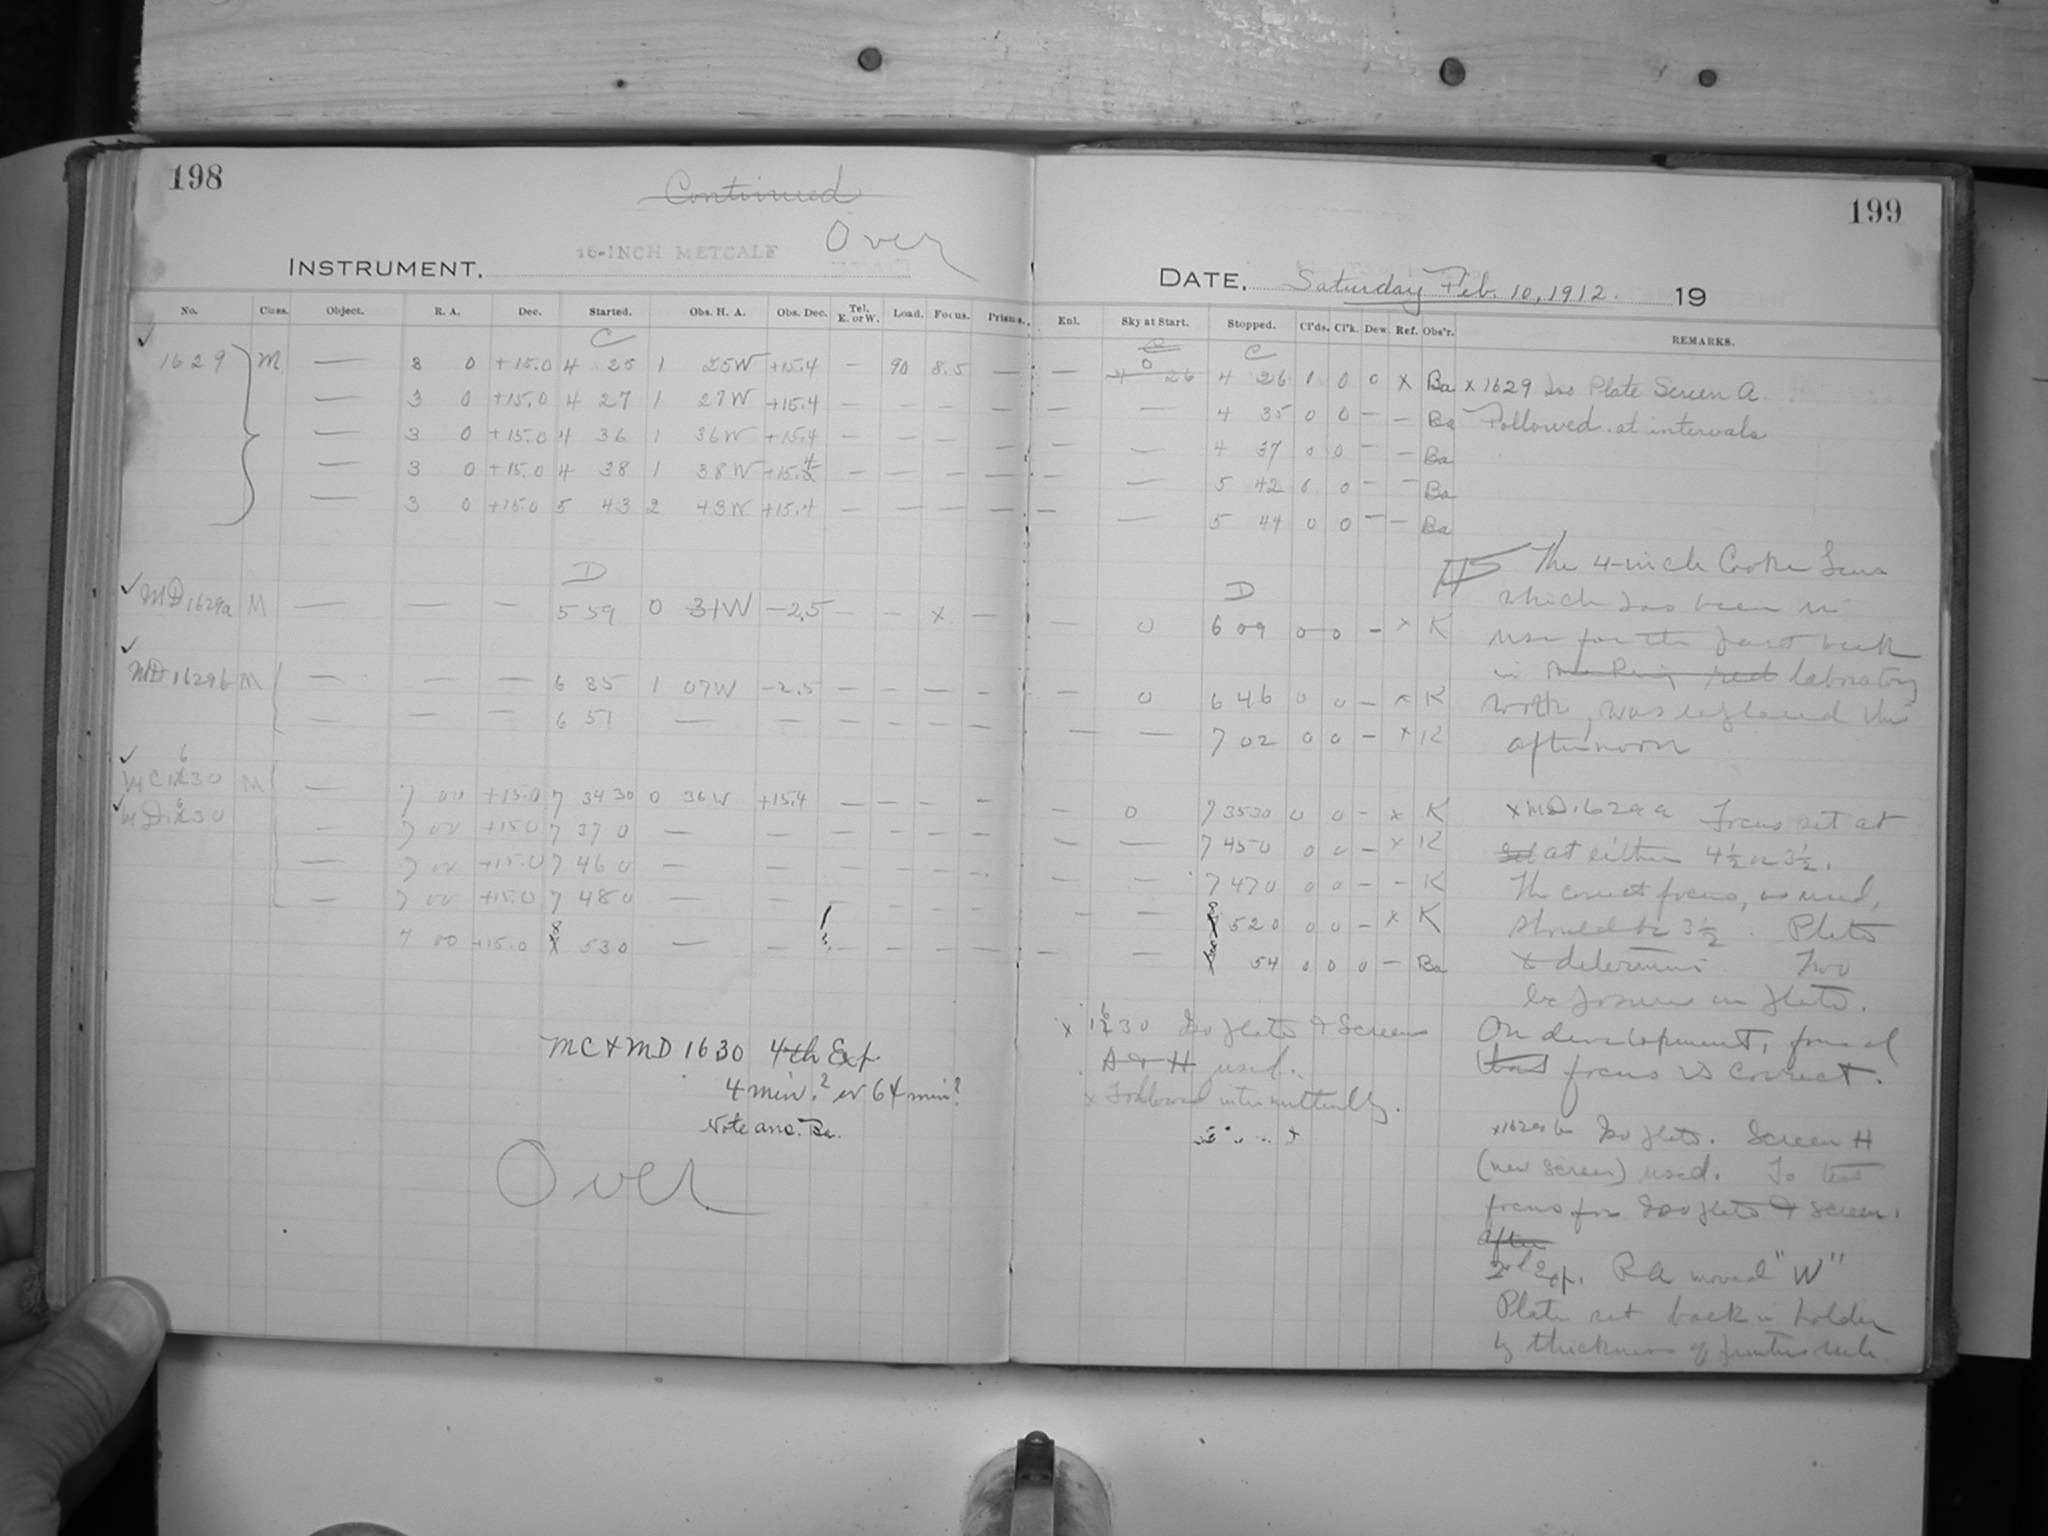 198
Continued
Over
INSTRUMENT. 16-INCH METCALF
No. Class. Object. R. A. Dec. Started. Obs. H. A. Obs. Dec. Tel. E. or W. Load. Focus. Prisms.
C
1629 M. — 3 0 +15.0 4 25 1 25W +15.4 — 90 8.5 —
— 3 0 +15.0 4 27 1 27W +15.4 — — — —
— 3 0 +15.0 4 36 1 36W +15.4 — — — —
— 3 0 +15.0 4 38 1 38W +15.4 — — — —
— 3 0 +15.0 5 43 2 43W +15.4 — — — —
D
MD 1629a M — — — 5 59 0 31W −2.5 — — x —
MD 1629b M — — — 6 35 1 07W −2.5 — — — —
— — — 6 51 — — — — — —
MC 1630 M — 7 00 +15.0 7 34 30 0 36W +15.4 — — — —
MD 1630 — 7 00 +15.0 7 37 0 — — — — — —
— 7 00 +15.0 7 46 0 — — — — — —
— 7 00 +15.0 7 48 0 — — — — — —
7 00 +15.0 8 53 0 — — — — — —
MC & MD 1630 4th Exp.
4 min.? or 64 min?
Note ans. Ba.
Over
199
DATE. Saturday Feb. 10, 1912. 19
Enl. Sky at Start. Stopped. Cl'ds. Cl'k. Dew. Ref. Obs'r. REMARKS.
C
— 0 4 26 4 26 1 0 0 x Ba x 1629 Iso Plate Screen A.
— — 4 35 0 0 — — Ba Followed at intervals
— — 4 37 0 0 — — Ba
— — 5 42 0 0 — — Ba
— — 5 44 0 0 — — Ba
The 4-inch Cooke Lens
which has been in
use for the past week
in laboratory
work, was replaced this
afternoon
D
— 0 6 09 0 0 — x K
— 0 6 46 0 0 — x K
— — 7 02 0 0 — x K
— 0 7 35 30 0 0 — x K
— — 7 45 0 0 0 — x K
— — 7 47 0 0 0 — — K
— — 8 52 0 0 0 — x K
— — 8 54 0 0 0 — Ba
x MD 1629a Focus set at
Set at either 4½ or 3½.
The correct focus, as used,
should be 3½. Plate
to determine. Two
exposures on plate.
On development, found
that focus is correct.
x 1630 Iso plate & Screens
A & H used.
x Followed intermittently.
x 1629b Iso plate. Screen H
(new screen) used. To test
focus for Iso plate & screen.
after
2nd Exp. R.A. moved "W"
Plate set back in holder
by thickness of